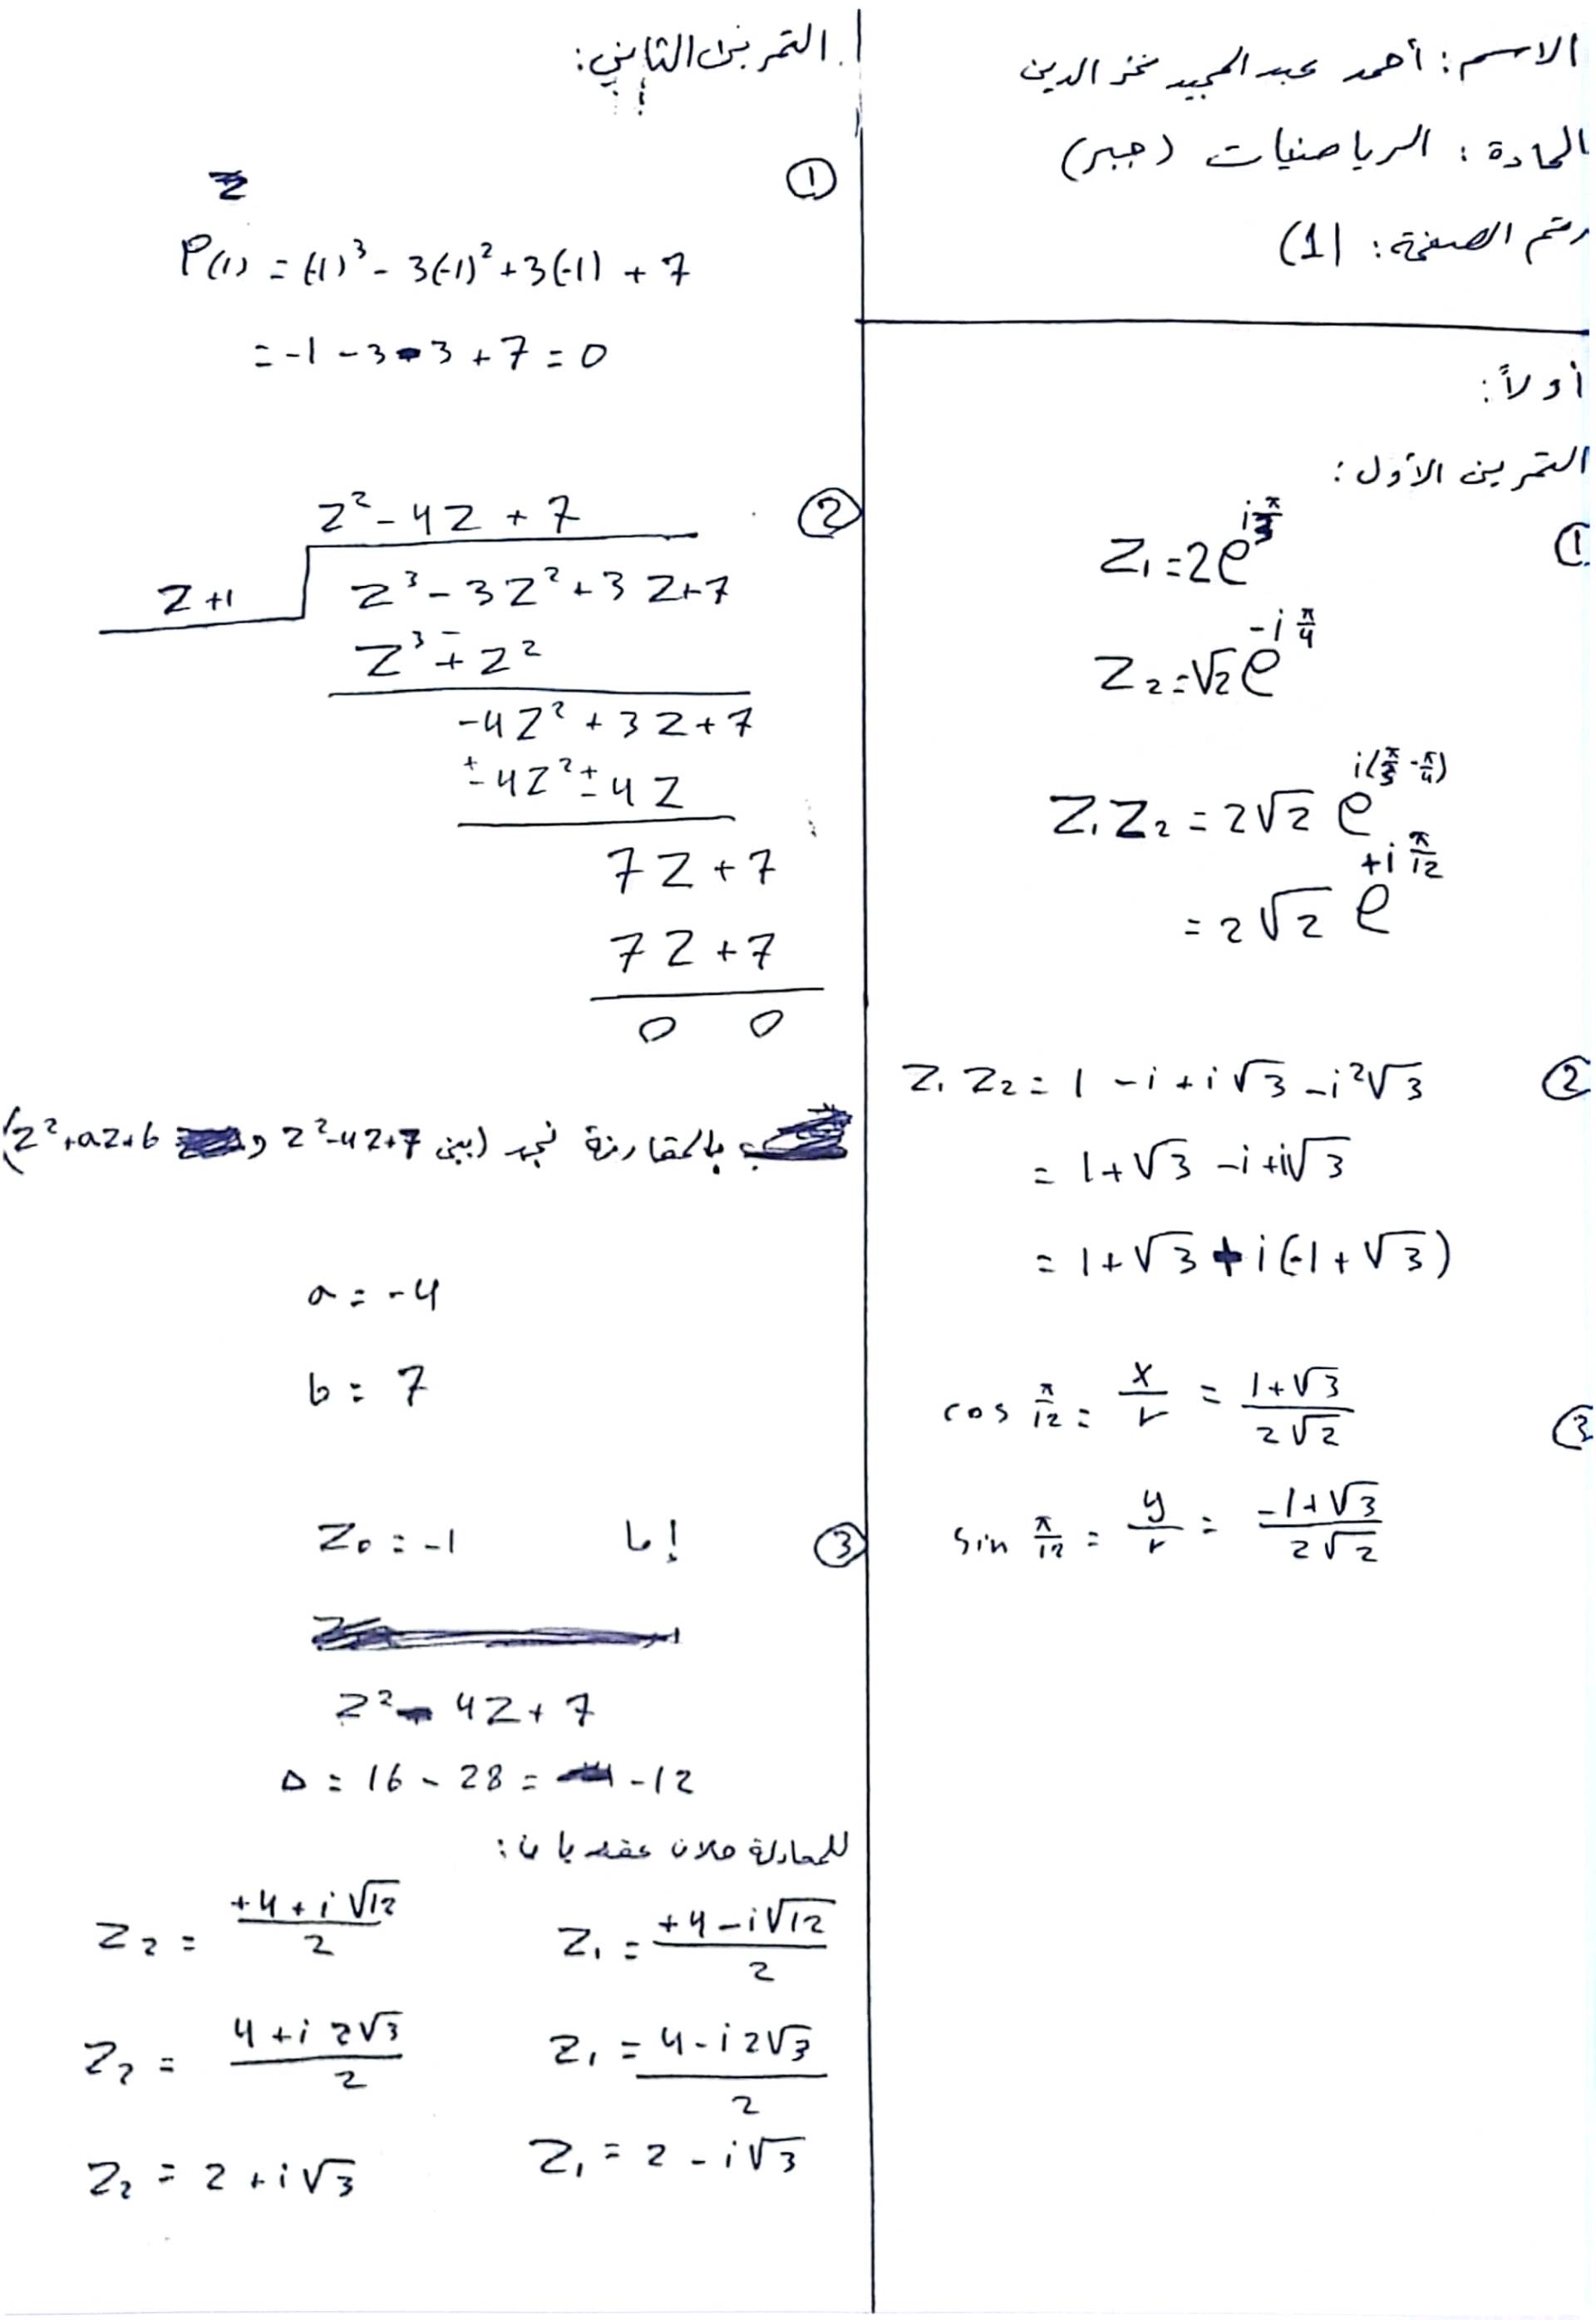 الاسم: أحمد عبد المجيد فخر الدين
المادة: الرياضيات (جبر)
رقم الصفحة: (1)
أولاً:
التمرين الأول:
①
Z₁ = 2e^{iπ/3}
Z₂ = √2 e^{-iπ/4}
Z₁Z₂ = 2√2 e^{i(π/3 - π/4)}
= 2√2 e^{+iπ/12}
② Z₁Z₂ = 1 - i + i√3 - i²√3
= 1 + √3 - i + i√3
= 1 + √3 + i(-1 + √3)
③ cos π/12 = x/r = (1+√3)/(2√2)
sin π/12 = y/r = (-1+√3)/(2√2)
التمرين الثاني:
①
P(1) = (-1)³ - 3(-1)² + 3(-1) + 7
= -1 - 3 - 3 + 7 = 0
②
Z² - 4Z + 7
Z+1 Z³ - 3Z² + 3Z + 7
Z³ + Z²
-4Z² + 3Z + 7
-4Z² - 4Z
7Z + 7
7Z + 7
0 0
بالمقارنة نجد (بين Z² - 4Z + 7 و Z² + aZ + b)
a = -4
b = 7
③ إما Z₀ = -1
Z² - 4Z + 7
Δ = 16 - 28 = -12
للمعادلة حلان عقديان:
Z₁ = (+4 - i√12)/2 Z₂ = (+4 + i√12)/2
Z₁ = (4 - i2√3)/2 Z₂ = (4 + i2√3)/2
Z₁ = 2 - i√3 Z₂ = 2 + i√3